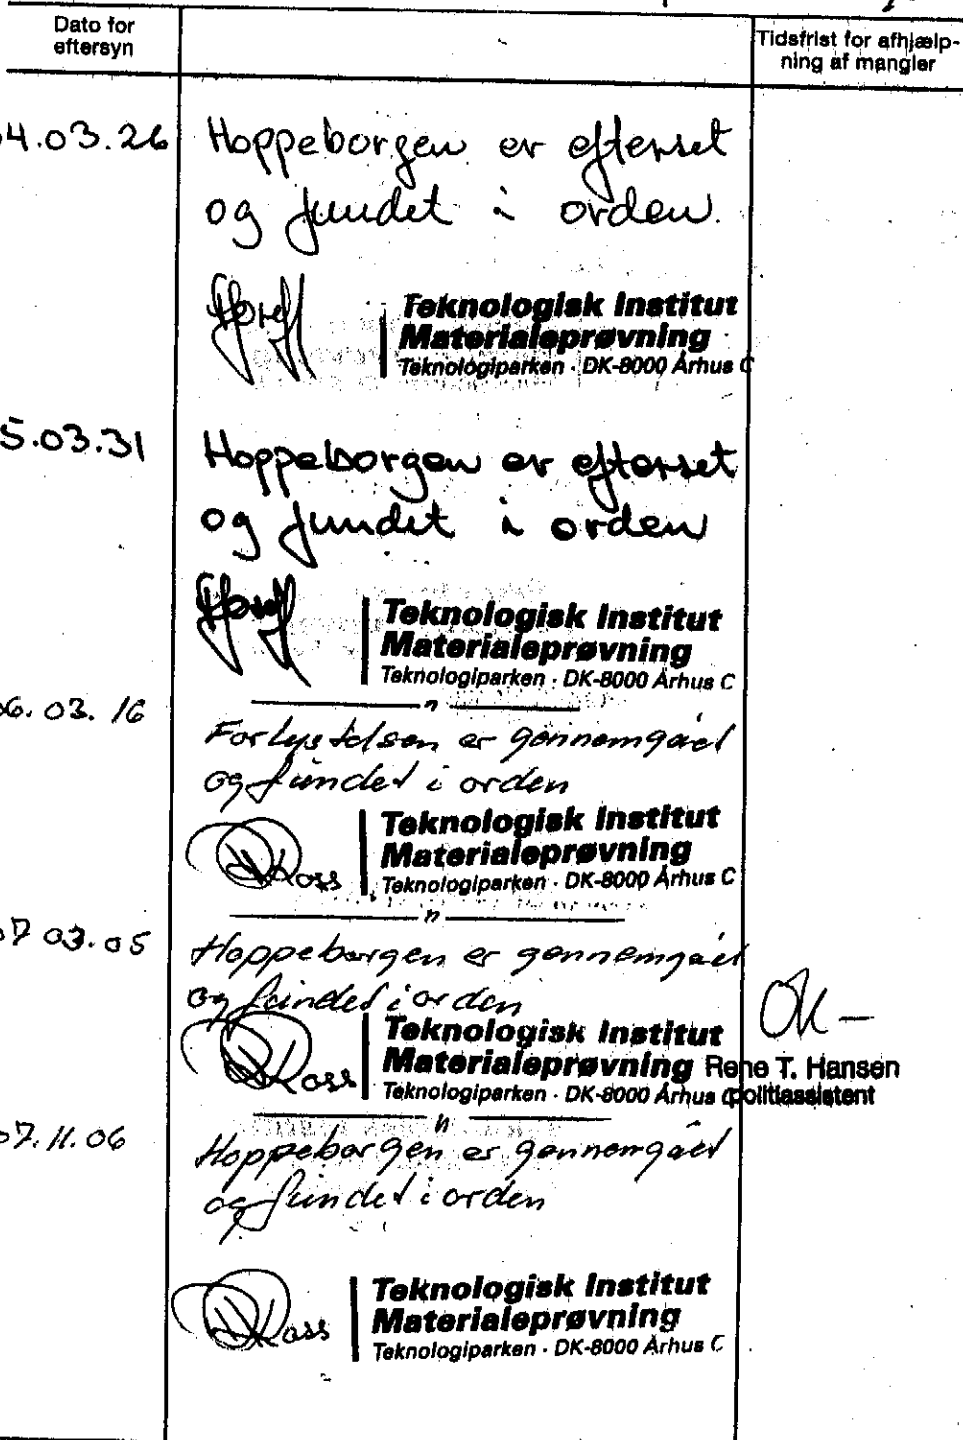 Dato for
eftersyn
Tidsfrist for afhjælp-
ning af mangler
4.03.26
Hoppeborgen er efterset
og fundet i orden.
Teknologisk Institut
Materialeprøvning
Teknologiparken · DK-8000 Århus C
5.03.31
Hoppeborgen er efterset
og fundet i orden
Teknologisk Institut
Materialeprøvning
Teknologiparken · DK-8000 Århus C
06.03.16
Forlystelsen er gennemgået
og fundet i orden
Teknologisk Institut
Materialeprøvning
Teknologiparken · DK-8000 Århus C
07 03.05
Hoppeborgen er gennemgået
og fundet i orden
OK —
Teknologisk Institut
Materialeprøvning Rene T. Hansen
Teknologiparken · DK-8000 Århus C politiassistent
07.11.06
Hoppeborgen er gennemgået
og fundet i orden
Teknologisk Institut
Materialeprøvning
Teknologiparken · DK-8000 Århus C